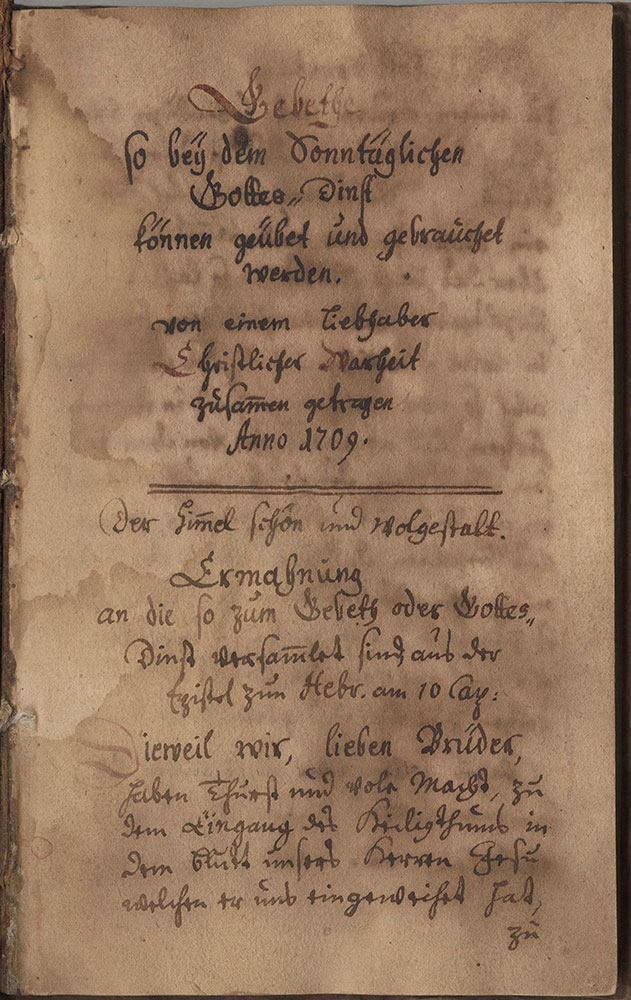 Gebethe
so beÿ dem Sonntäglichen
Gottes„ Dinst
können geübet und gebrauchet
werden.
von einem Liebhaber
Christlicher Warheit
zusam̄en getragen
Anno 1709.
Der Him̄el schön und wolgestalt.
Ermahnung
an die so zum Gebeth oder Gottes„
Dinst versam̄let sind aus der
Epistol zun Hebr. am 10 Cap:
Dieweil wir, lieben Brüder,
haben Thurst und vole Macht, zu
dem Eingang des Heiligthums in
dem blutt unsers Herren Jesu
welchen er uns eingeweihet hat,
zu